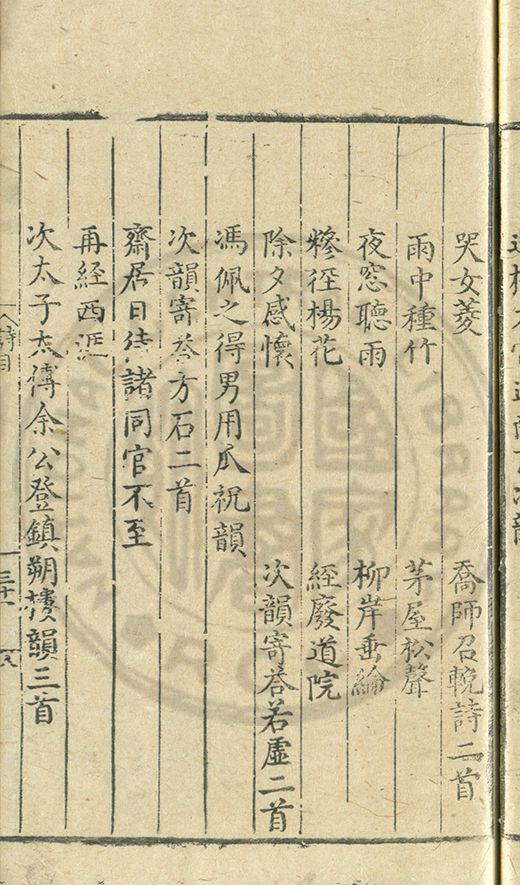 哭女菱　喬師召輓詩二首
雨中種竹　茅屋松聲
夜窓聽雨　柳岸垂綸
糝徑楊花　經廢道院
除夕感懷　次韻寄荅若虛二首
馮佩之得男用瓜祝韻
次韻寄荅方石二首
齋居日待諸同官不至
再經西涯
次太子太傅余公登鎮朔樓韻三首
詩目
三十一